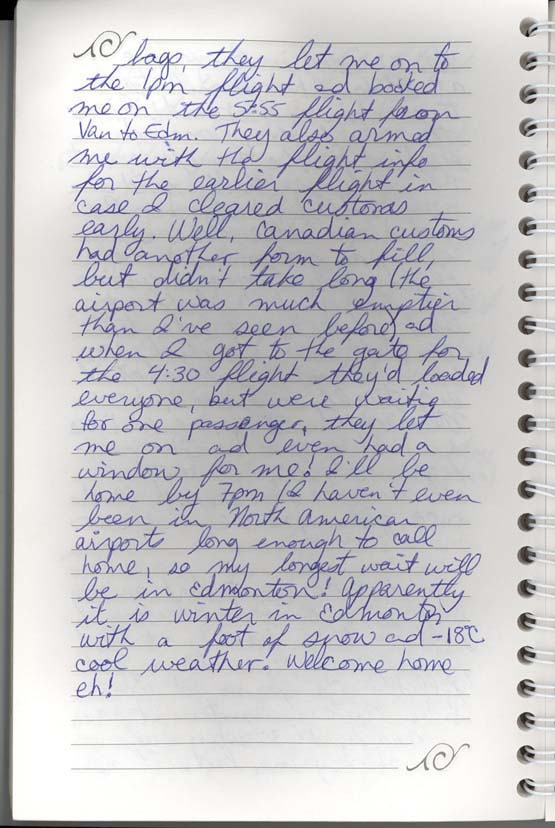 bags, they let me on to
the 1pm flight ad booked
me on the 5:55 flight from
Van to Edm. They also armed
me with the flight info
for the earlier flight in
case I cleared customs
early. Well, Canadian customs
had another form to fill,
but didn't take long (the
airport was much emptier
than I've seen before) ad
when I got to the gate for
the 4:30 flight they'd loaded
everyone, but were waitig
for one passenger, they let
me on ad even had a
window for me! I'll be
home by 7pm (I haven't even
been in North American
airports long enough to call
home, so my longest wait will
be in Edmonton! Apparently
it is winter in Edmonton
with a foot of snow ad -18°C
cool weather. Welcome home
eh!